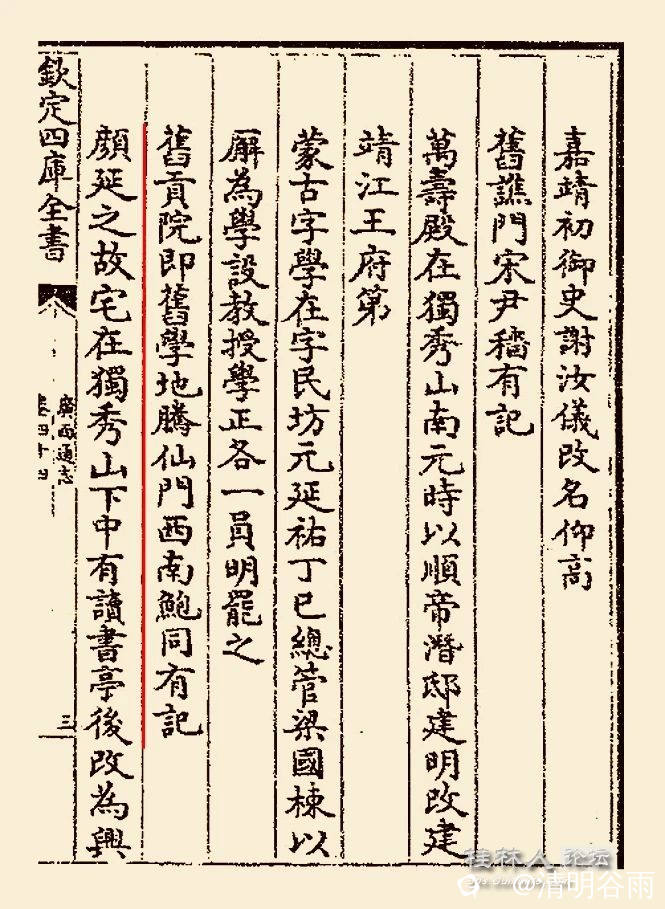 嘉靖初御史謝汝儀改名仰高
舊譙門宋尹穡有記
萬壽殿在獨秀山南元時以順帝潛邸建明改建
靖江王府第
蒙古字學在字民坊元延祐丁巳總管梁國棟以
廨為學設教授學正各一員明罷之
舊貢院即舊學地騰仙門西南鮑同有記
顔延之故宅在獨秀山下中有讀書亭後改為興
欽定四庫全書
廣西通志
卷四十四
三
桂林人论坛
@清明谷雨